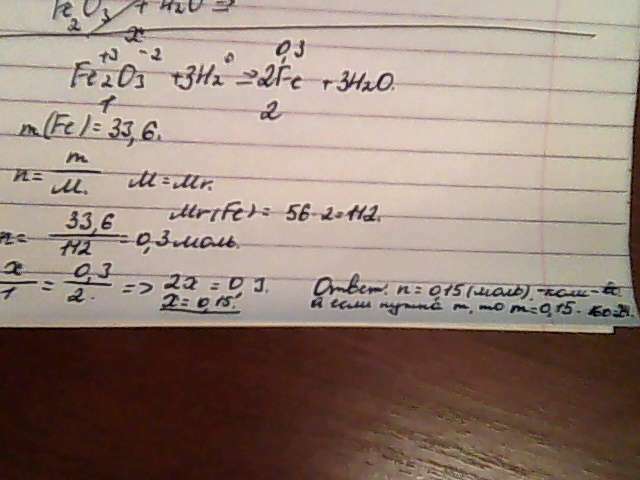 Fe2O3 + H2O ⇒
x 0,3
+3 -2 0
Fe2O3 + 3H2 ⇒ 2Fe + 3H2O.
1 2
m(Fe) = 33,6.
n = m/M. M = Mr.
Mr(Fe) = 56·2=112.
n = 33,6/112 = 0,3 моль.
x/1 = 0,3/2. => 2x = 0,3.
x = 0,15.
Ответ: n = 0,15 (моль) -кол-
а если нужна m, то m = 0,15 ·